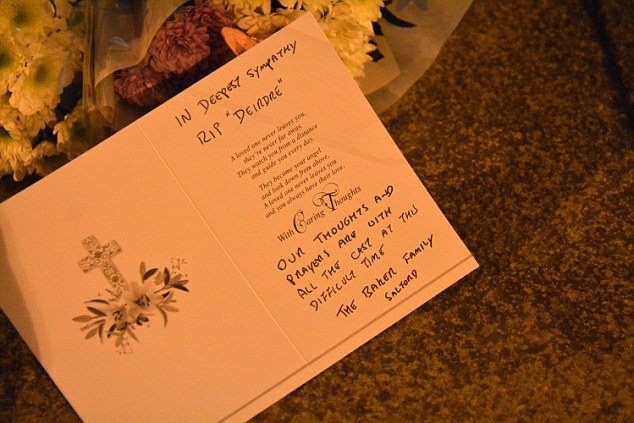 IN DEEPEST SYMPATHY
RIP "DEIRDRE"
A loved one never leaves you,
they're never far away.
They watch you from a distance
and guide you every day.
They become your angel
and look down from above,
A loved one never leaves you
and you always have their love.
With Caring Thoughts
OUR THOUGHTS AND
PRAYERS ARE WITH
ALL THE CAST AT THIS
DIFFICULT TIME
THE BAKER FAMILY
SALFORD